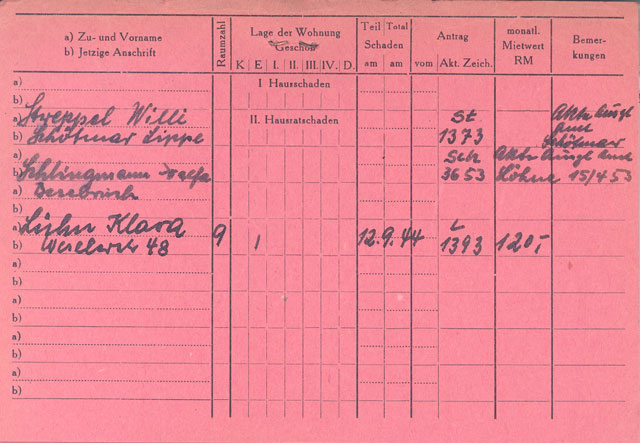 a) Zu- und Vorname
b) Jetzige Anschrift
Raumzahl
Lage der Wohnung
Geschoß
K. E. I. II. III. IV. D.
Teil Total
Schaden
am am
Antrag
vom Akt. Zeich.
monatl.
Mietwert
RM
Bemer-
kungen
a) I Hausschaden
b)
a) Streppel Willi II. Hausratschaden St Akte Ausgl
b) Schötmar Lippe 1373 Amt Schötmar
a) Schlingmann Sch Akte Ausgl Amt
b) 3653 Löhne 15/4 53
a)
b)
a) Lühn Klara L
b) Weselerstr 48 9 1 12.9.44 1393 120,-
a)
b)
a)
b)
a)
b)
a)
b)